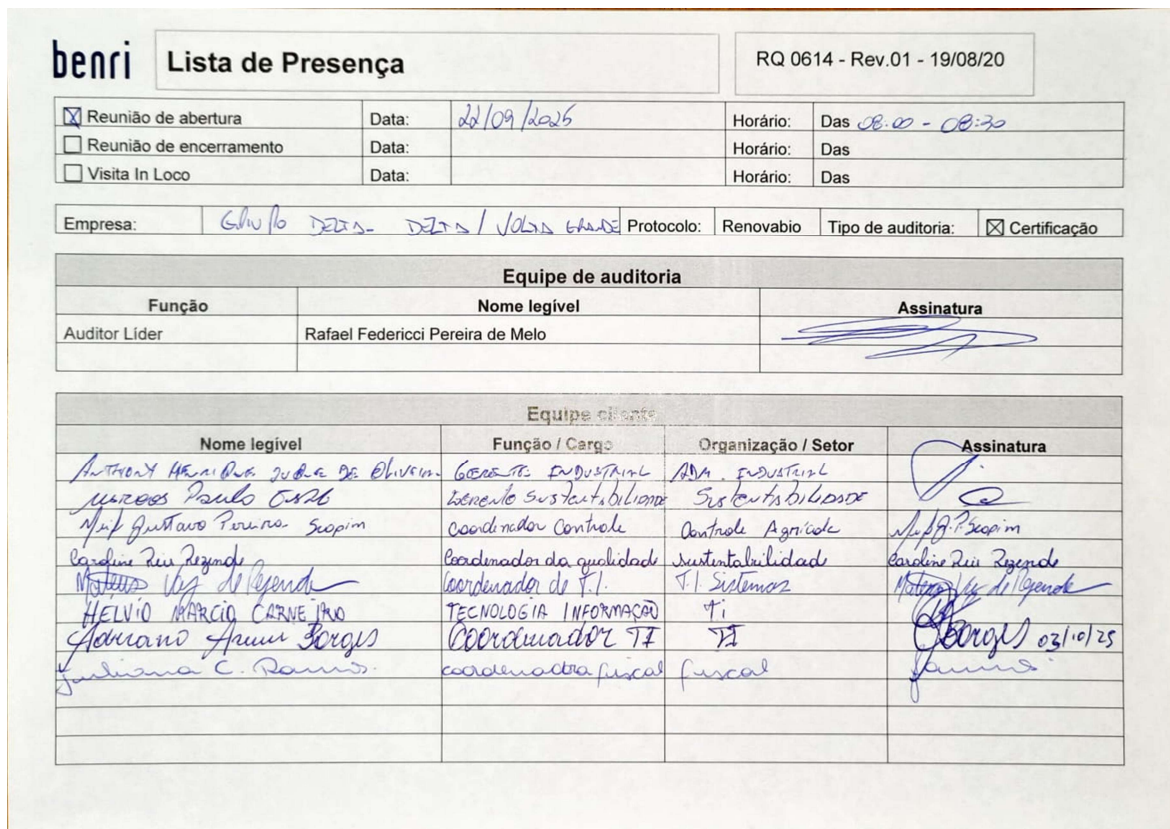 benri Lista de Presença RQ 0614 - Rev.01 - 19/08/20
Reunião de abertura Data: 22/09/2025 Horário: Das 08:00 - 08:30
Reunião de encerramento Data: Horário: Das
Visita In Loco Data: Horário: Das
Empresa: Grupo DELTA - DELTA / VOLTA GRANDE Protocolo: Renovabio Tipo de auditoria: Certificação
Equipe de auditoria
Função Nome legível Assinatura
Auditor Líder Rafael Federicci Pereira de Melo
Equipe cliente
Nome legível Função / Cargo Organização / Setor Assinatura
ANTHONY HENRIQUE DE OLIVEIRA GERENTE INDUSTRIAL ADM. INDUSTRIAL
Marcos Paulo Gerente Sustentabilidade Sustentabilidade
Gustavo Pereira Scopim Coordenador Controle Controle Agrícola Scopim
Caroline Reis Rezende Coordenador da qualidade sustentabilidade Caroline Reis Rezende
Mateus Vaz de Rezende Coordenador de T.I. T.I Sistemas Mateus Vaz de Rezende
HELVIO MARCIO CARNEIRO TECNOLOGIA INFORMAÇÃO Ti
Adriano Borges Coordenador TI TI Borges 03/10/25
Juliana C. Ramos. coordenadora fiscal fiscal